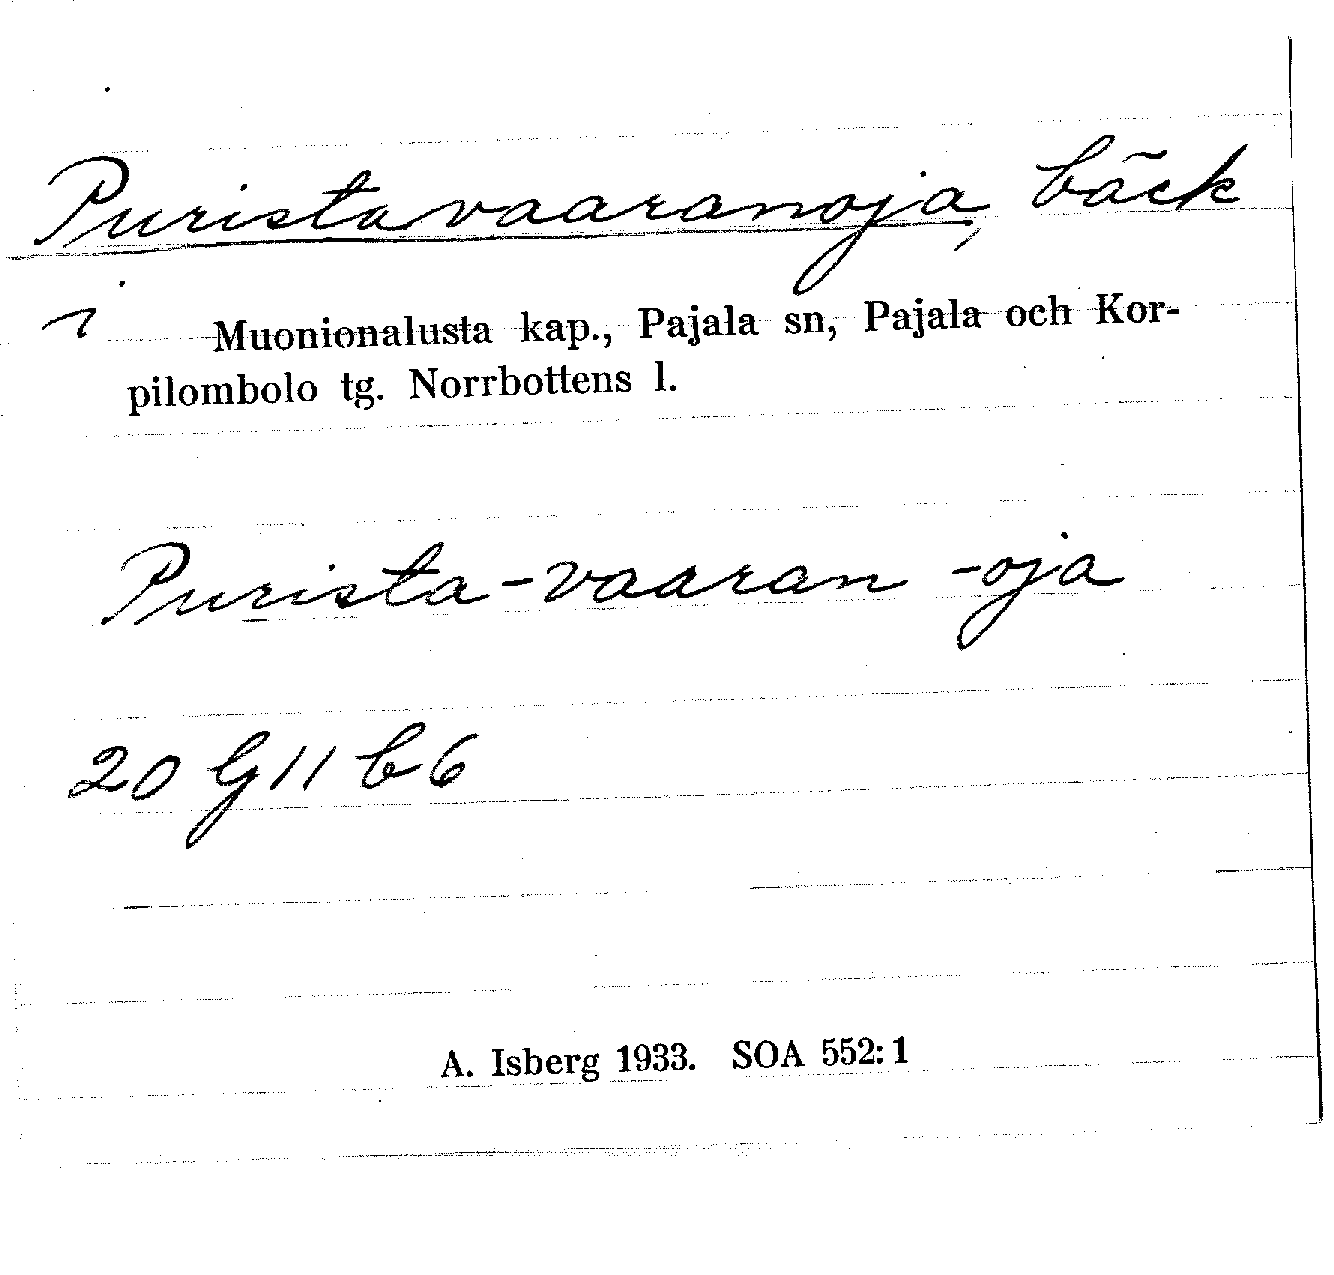 Puristavaaranoja, bäck
i Muonionalusta kap., Pajala sn, Pajala och Kor-
pilombolo tg. Norrbottens l.
Purista-vaaran -oja
20 G 11 b 6
A. Isberg 1933. SOA 552:1